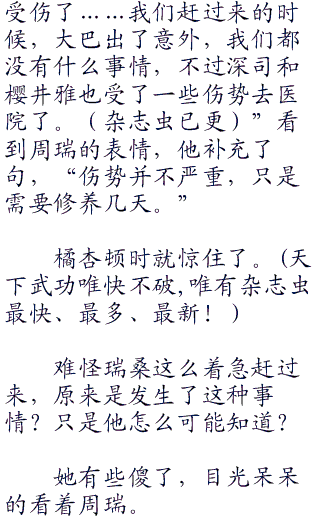 受伤了……我们赶过来的时
候，大巴出了意外，我们都
没有什么事情，不过深司和
樱井雅也受了一些伤势去医
院了。（杂志虫已更）”看
到周瑞的表情，他补充了
句，“伤势并不严重，只是
需要修养几天。”
橘杏顿时就惊住了。(天
下武功唯快不破,唯有杂志虫
最快、最多、最新！)
难怪瑞桑这么着急赶过
来，原来是发生了这种事
情？只是他怎么可能知道？
她有些傻了，目光呆呆
的看着周瑞。